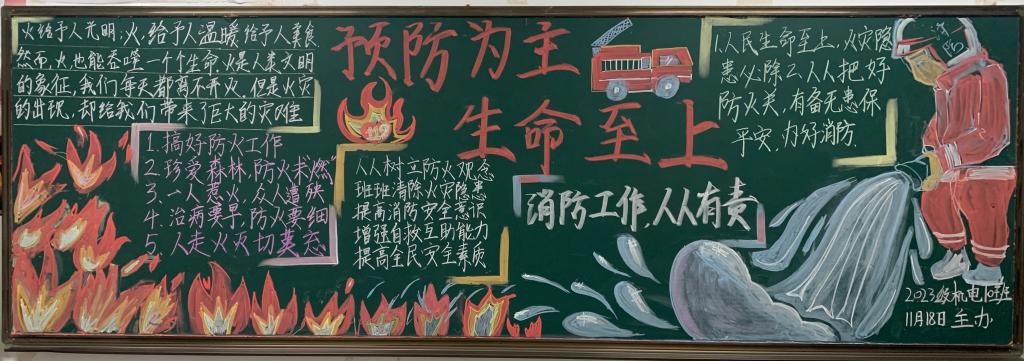 火给予人光明,火给予人温暖给予人美食
然而,火也能吞噬一个个生命,火是人类文明
的象征,我们每天都离不开火,但是火灾
的出现,却给我们带来了巨大的灾难
1.搞好防火工作
2.珍爱森林,防火未燃"
3.一人惹火,众人遭殃
4.治病要早,防火要细
5.人走火灭切莫忘
预防为主
生命至上
119
人人树立防火观念
班班清除火灾隐患
提高消防安全意识
增强自救互助能力
提高全民安全素质
消防工作,人人有责
1.人民生命至上,火灾隐
患必除2.人人把好
防火关,有备无患保
平安,办好消防.
消防
2023级机电1班
11月18日主办